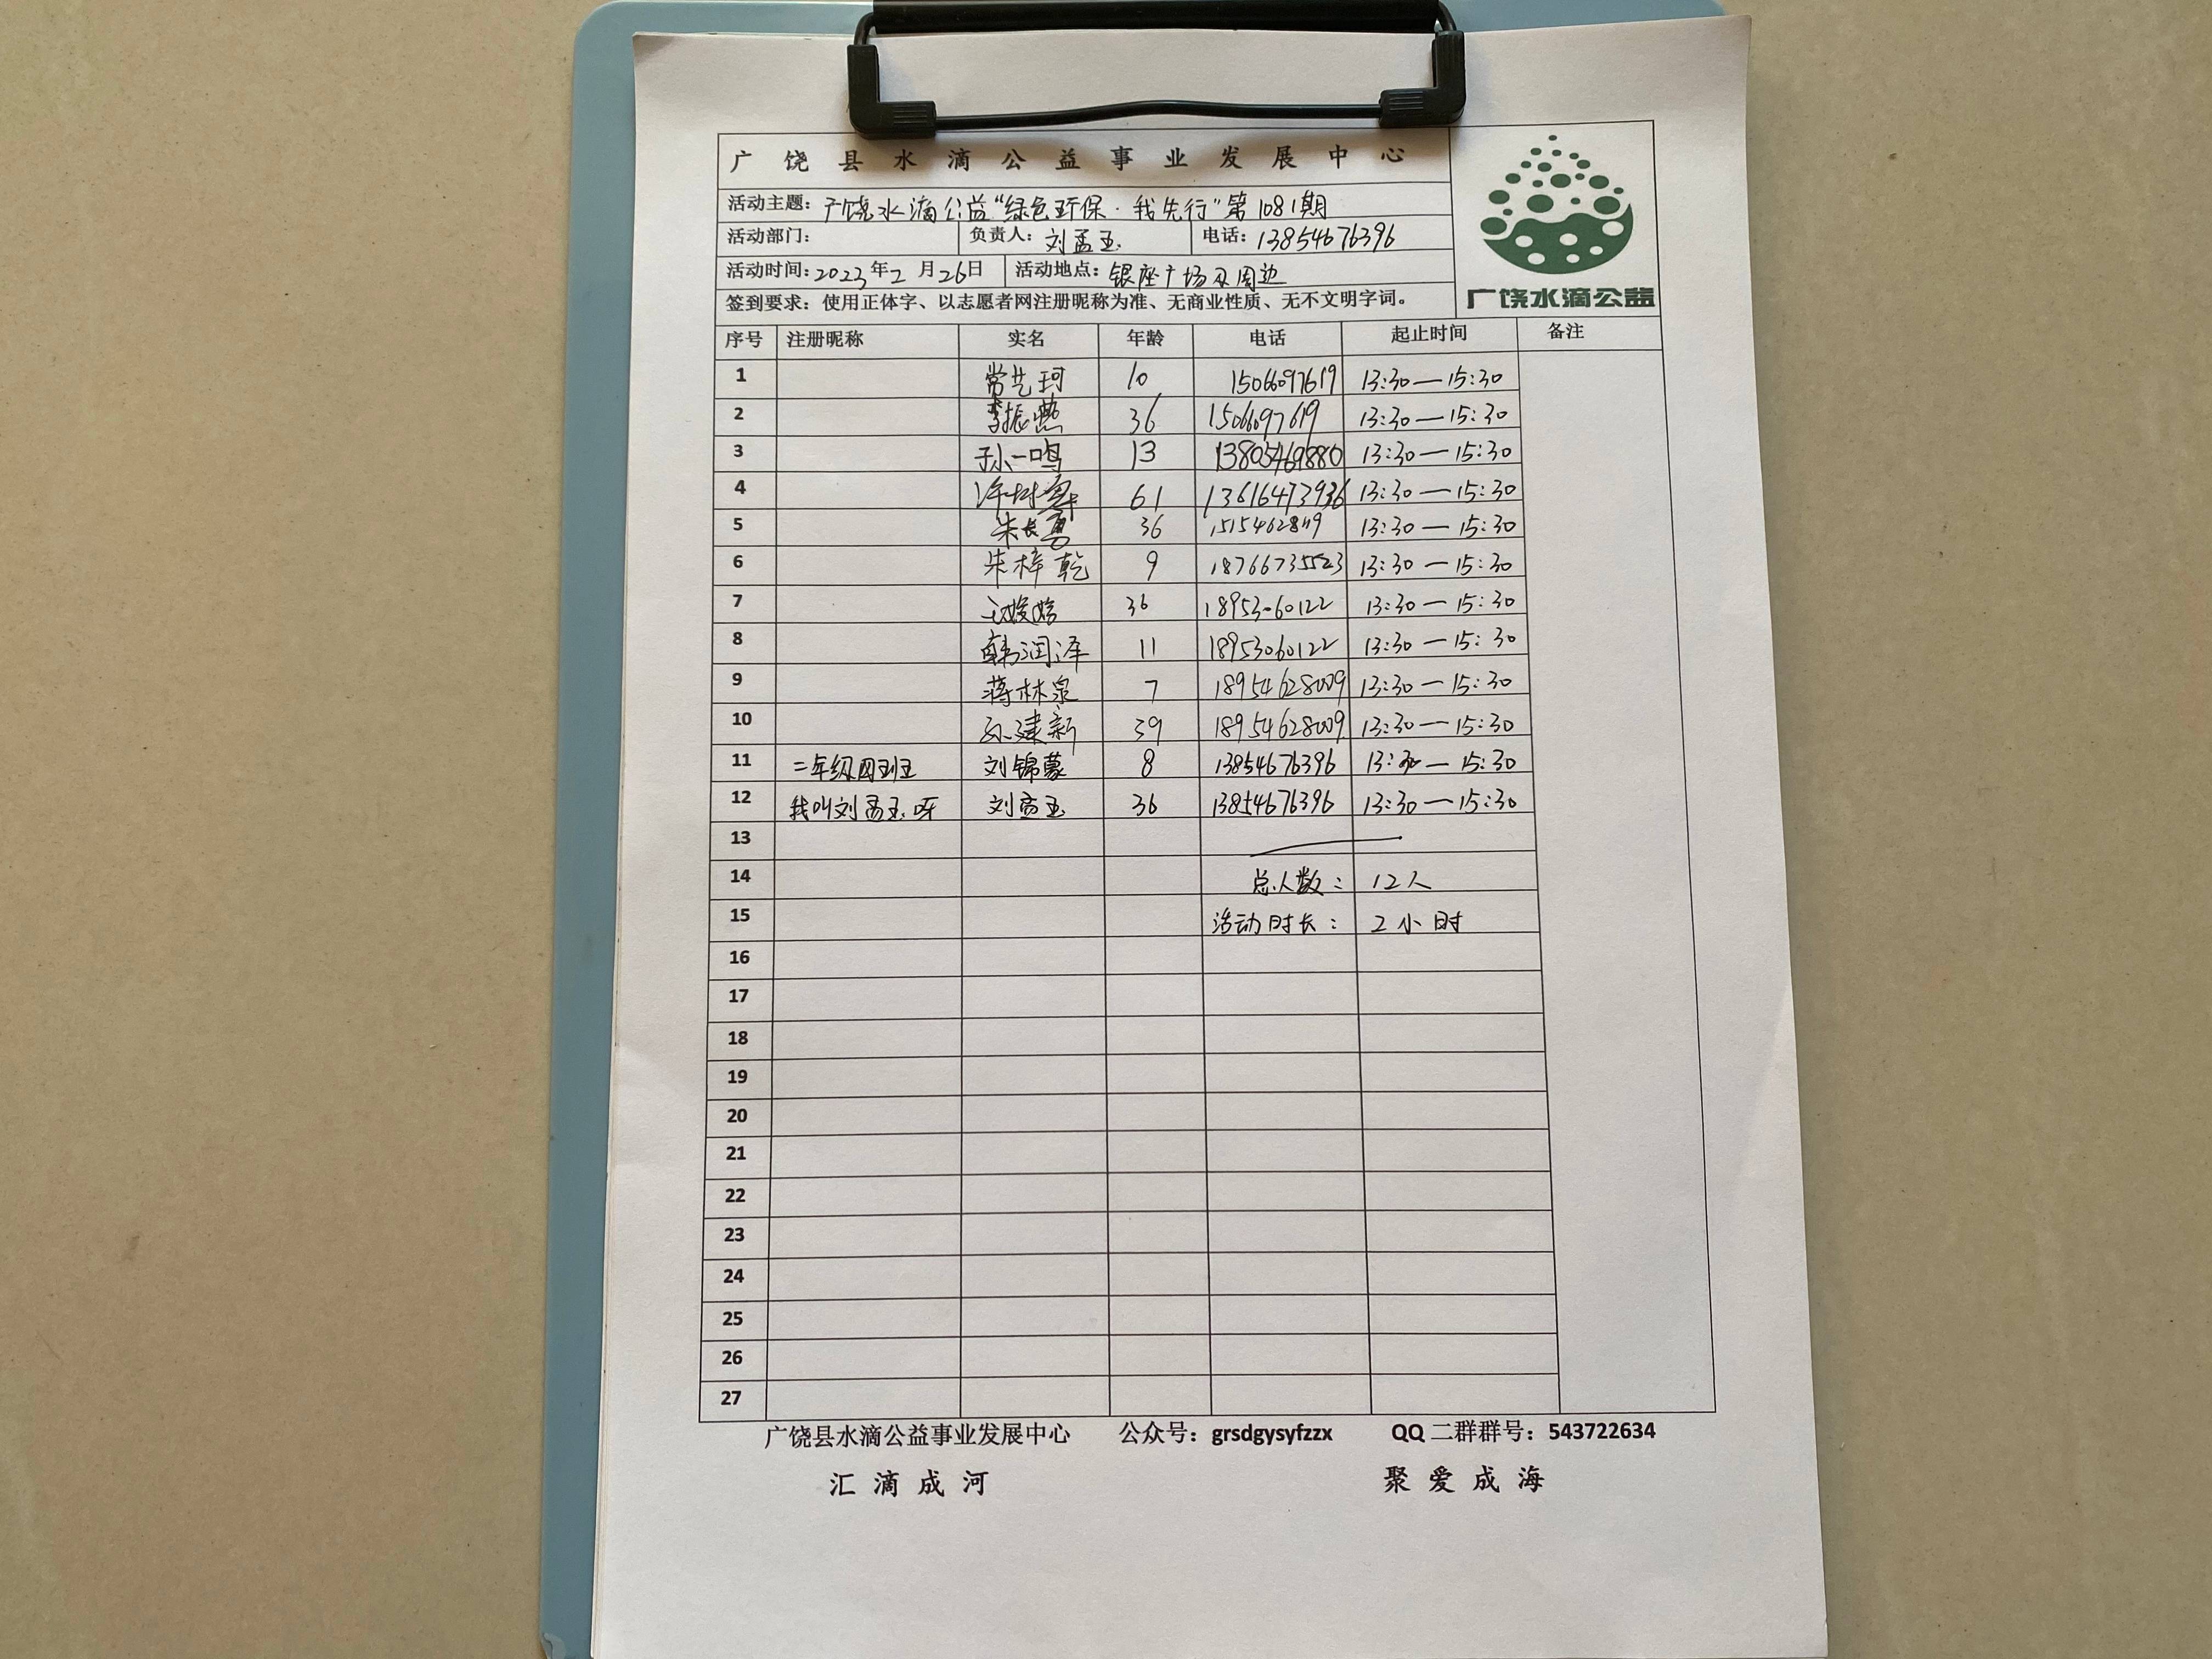 广饶县水滴公益事业发展中心
活动主题：广饶水滴公益"绿色环保·我先行"第1081期
活动部门： 负责人：刘孟玉 电话：13854676396
活动时间：2023年2月26日 活动地点：银座广场及周边
签到要求：使用正体字、以志愿者网注册昵称为准、无商业性质、无不文明字词。
广饶水滴公益
序号 注册昵称 实名 年龄 电话 起止时间 备注
1 常艺珂 10 1506697619 13:30—15:30
2 李振燕 36 1506697619 13:30—15:30
3 孙一鸣 13 13805469880 13:30—15:30
4 61 13616473936 13:30—15:30
5 朱长勇 36 13:30—15:30
6 朱梓乾 9 18766735523 13:30—15:30
7 36 18953060122 13:30—15:30
8 韩润泽 11 18953060122 13:30—15:30
9 蒋林泉 7 18954628009 13:30—15:30
10 孙建新 39 18954628009 13:30—15:30
11 二年级四班 刘锦蒙 8 13854676396 13:30—15:30
12 我叫刘孟玉呀 刘孟玉 36 13854676396 13:30—15:30
13
14 总人数： 12人
15 活动时长： 2小时
16
17
18
19
20
21
22
23
24
25
26
27
广饶县水滴公益事业发展中心 公众号：grsdgysyfzzx QQ二群群号：543722634
汇滴成河 聚爱成海